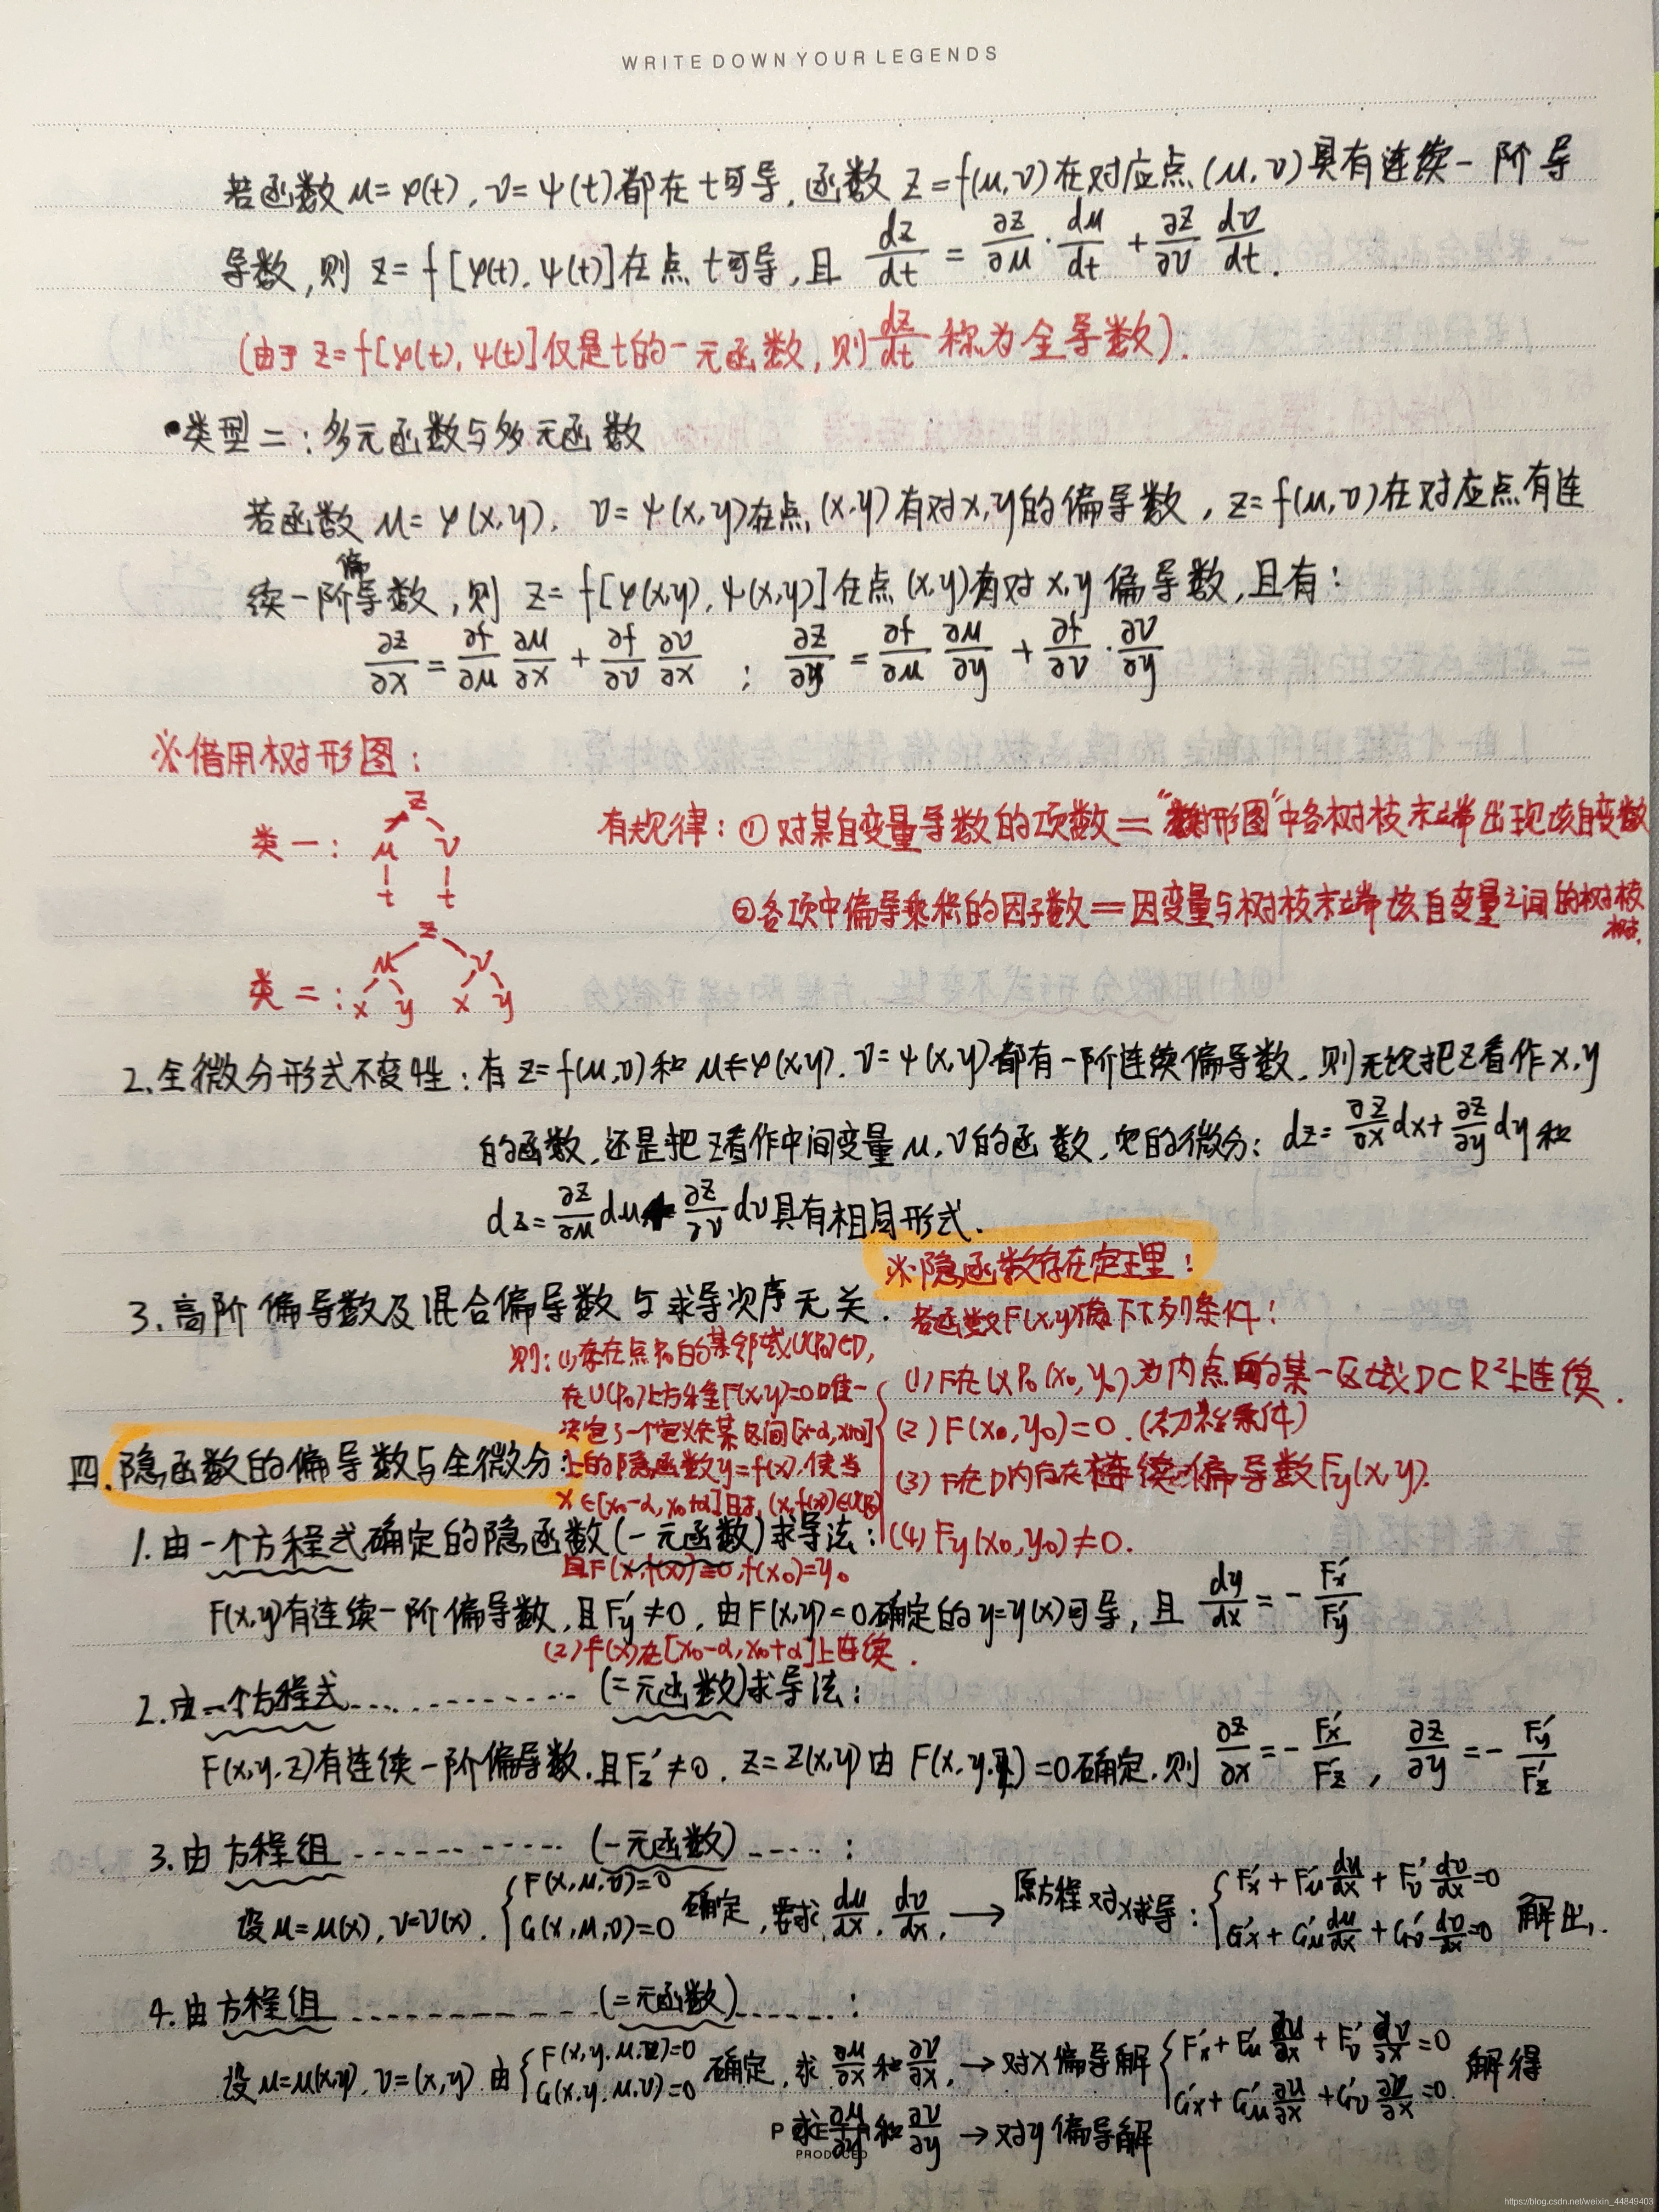 WRITE DOWN YOUR LEGENDS
若函数 μ=φ(t), ν=ψ(t)都在t可导, 函数 z=f(μ,ν)在对应点(μ,ν)具有连续一阶导
导数,则 z=f[φ(t),ψ(t)]在点t可导,且 dz/dt = ∂z/∂μ · dμ/dt + ∂z/∂ν dν/dt.
(由于 z=f[φ(t),ψ(t)]仅是t的一元函数,则dz/dt称为全导数).
•类型二:多元函数与多元函数
若函数 μ=φ(x,y), ν=ψ(x,y)在点(x,y)有对x,y的偏导数, z=f(μ,ν)在对应点有连
续一阶偏导数,则 z=f[φ(x,y),ψ(x,y)]在点(x,y)有对x,y偏导数,且有:
∂z/∂x = ∂f/∂μ ∂μ/∂x + ∂f/∂ν ∂ν/∂x ; ∂z/∂y = ∂f/∂μ ∂μ/∂y + ∂f/∂ν · ∂ν/∂y
※借用树形图:
类一: z μ ν t t
有规律:①对某自变量导数的项数="树形图"中各树枝末端出现该自变数
②各项中偏导乘积的因子数=因变量与树枝末端该自变量之间的树枝
类二: z μ ν x y x y
2.全微分形式不变性:有z=f(μ,ν)和μ=φ(x,y),ν=ψ(x,y)都有一阶连续偏导数,则无论把z看作x,y
的函数,还是把z看作中间变量μ,ν的函数,它的微分:dz=∂z/∂x dx+∂z/∂y dy和
dz=∂z/∂μ dμ+∂z/∂ν dν具有相同形式.
3.高阶偏导数及混合偏导数与求导次序无关.
※隐函数存在定理:
若函数F(x,y)满下下列条件:
(1)F在以P₀(x₀,y₀)为内点的某一区域D⊂R²上连续.
(2)F(x₀,y₀)=0.(初始条件)
(3)F在D内存在连续偏导数Fy(x,y).
(4)Fy(x₀,y₀)≠0.
则:(1)存在点P₀的某邻域U(P₀)⊂D,
在U(P₀)上方程F(x,y)=0唯一
决定了一个定义在某区间
上的隐函数y=f(x),使当
x∈[x₀-α,x₀+α]时,(x,f(x))∈U(P₀)
且F(x,f(x))≡0,f(x₀)=y₀
(2)f(x)在[x₀-α,x₀+α]上连续.
四.隐函数的偏导数与全微分:
1.由一个方程式确定的隐函数(一元函数)求导法:
F(x,y)有连续一阶偏导数,且F'y≠0,由F(x,y)=0确定的y=y(x)可导,且 dy/dx=-F'x/F'y
2.由一个方程式............(二元函数)求导法:
F(x,y,z)有连续一阶偏导数,且F'z≠0, z=z(x,y)由F(x,y,z)=0确定,则 ∂z/∂x=-F'x/F'z, ∂z/∂y=-F'y/F'z
3.由方程组------------(一元函数)-----:
设μ=μ(x),ν=ν(x). {F(x,μ,ν)=0 G(x,μ,ν)=0 确定,要求dμ/dx,dν/dx,→原方程对x求导:{F'x+F'μ dμ/dx+F'ν dν/dx=0 G'x+G'μ dμ/dx+G'ν dν/dx=0 解出.
4.由方程组------------(二元函数)------:
设μ=μ(x,y),ν=(x,y)由{F(x,y,μ,ν)=0 G(x,y,μ,ν)=0 确定,求∂μ/∂x和∂ν/∂x,→对x偏导解{F'x+F'μ ∂μ/∂x+F'ν ∂ν/∂x=0 G'x+G'μ ∂μ/∂x+G'ν ∂ν/∂x=0. 解得
求∂μ/∂y和∂ν/∂y→对y偏导解
PRODUCED
https://blog.csdn.net/weixin_44849403